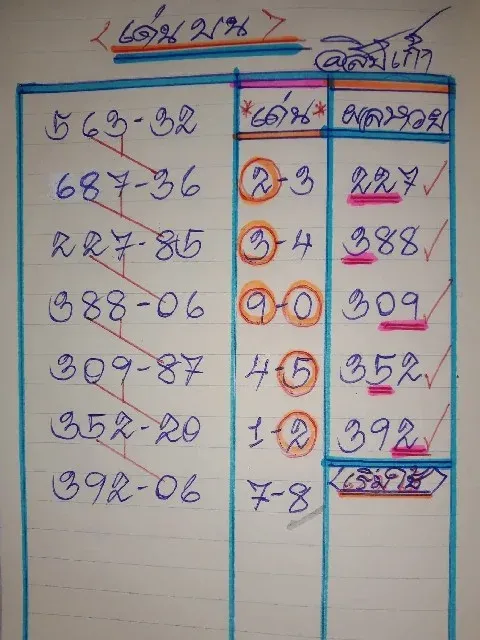 <เด่นบน>
อ.สิบเก้า
563-32 *เด่น* ผลหวย
687-36 2-3 227 ✓
227-85 3-4 388 ✓
388-06 9-0 309 ✓
309-87 4-5 352 ✓
352-20 1-2 392 ✓
392-06 7-8 <เริ่มใช้>